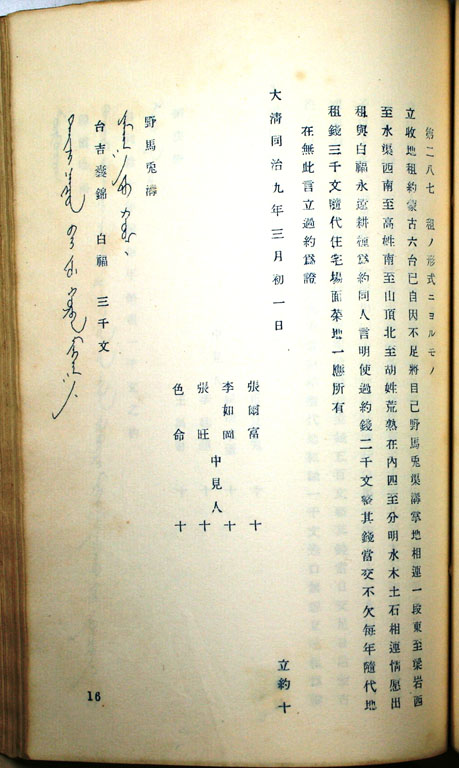 約二八七 租ノ形式ニヨルモノ
立收地租約蒙古六台已自因不足將自己野馬兎渠溝掌地相連一段東至梁岩西
至水渠西南至高姓南至山頂北至胡姓荒熟在內四至分明水木土石相連情愿出
租與白福永遠耕種爲約同人言明使過約錢二千文整其錢當交不欠每年隨代地
租錢三千文隨代住宅場面菜地一應所有
在無此言立過約爲證
大清同治九年三月初一日
立約十
張爾富 十
李如岡 十
中見人
張旺 十
色命 十
野馬兎溝
台吉嚢錦 白福 三千文
16